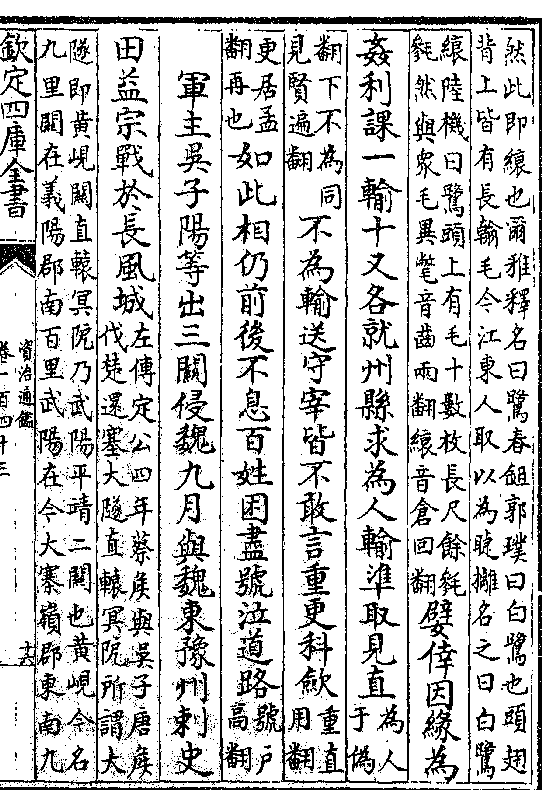 然此即縗也爾雅釋名曰鷺舂鉏郭璞曰白鷺也頭翅
背上皆有長翰毛今江東人取以為睫攡名之曰白鷺
縗陸機曰鷺頭上有毛十數枚長尺餘毿
毿然與衆毛異氅音齒兩翻縗音倉回翻
嬖倖因緣為
姦利課一輸十又各就州縣求為人輸準取見直
為人
于偽
翻下不為同
見賢遍翻
不為輸送守宰皆不敢言重更科歛
重直
用翻
更居孟
翻再也
如此相仍前後不息百姓困盡號泣道路
號戶
高翻
軍主吳子陽等出三關侵魏九月與魏東豫州刺史
田益宗戰於長風城
左傳定公四年蔡侯與吳子唐侯
伐楚還塞大隧直轅冥阨所謂大
隧即黃峴關直轅冥阨乃武陽平靖二關也黃峴今名
九里關在義陽郡南百里武陽在今大寨嶺郡東南九
欽定四庫全書
資治通鑑
卷一百四十三